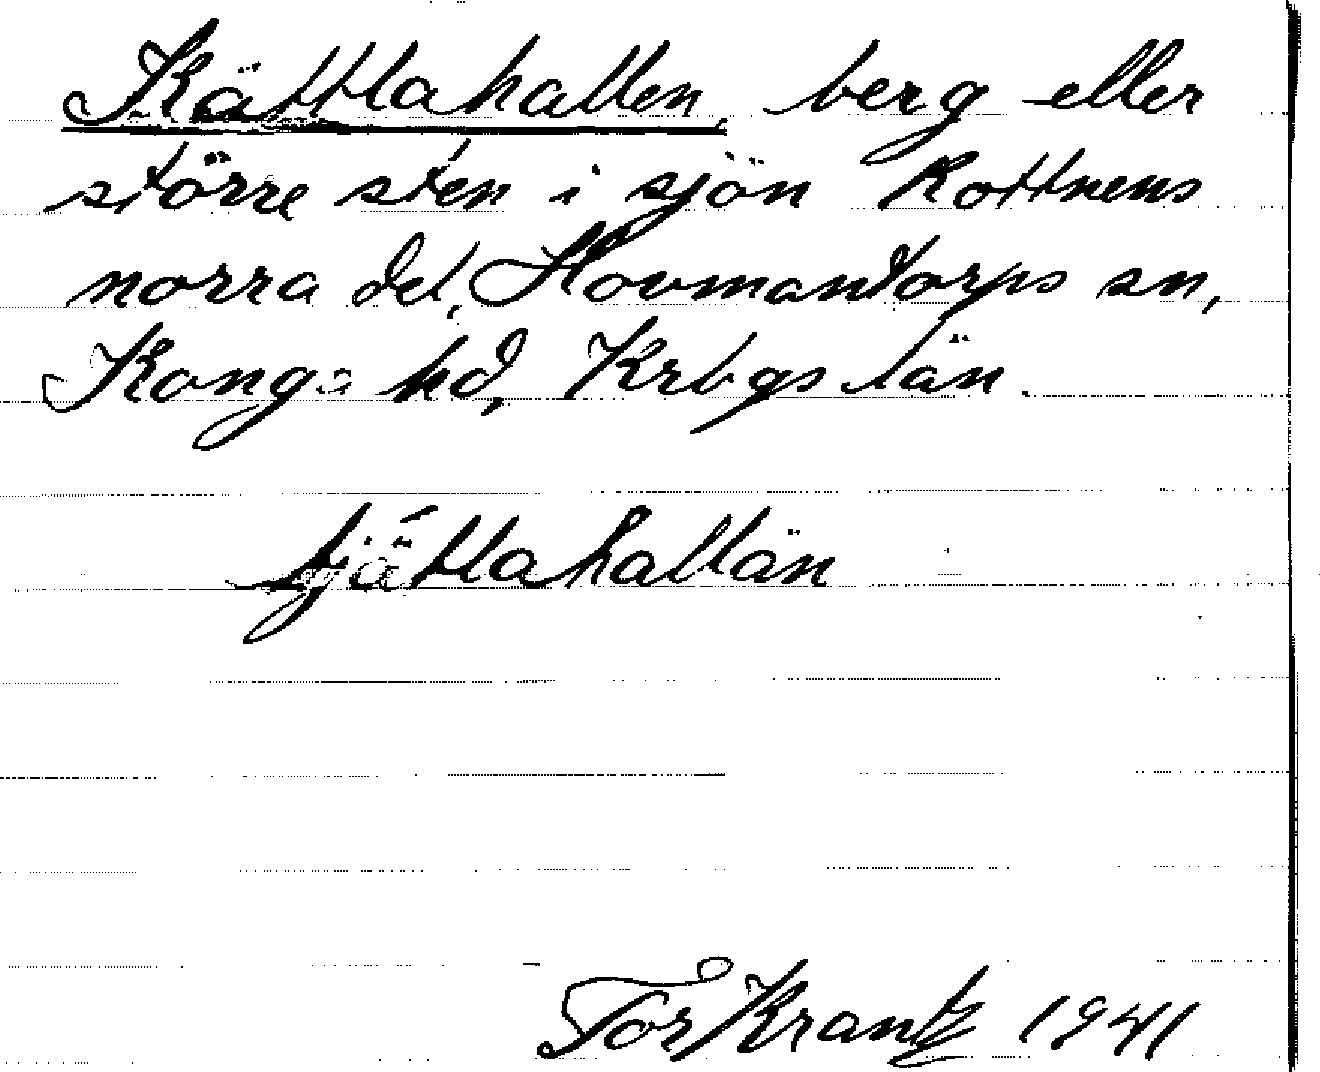 Kättlahallen, berg eller
större sten i sjön Rottnens
norra del, Hovmantorps sn,
Konga hd, Krbgs län.
tjättlahallän
Tor Krantz 1941